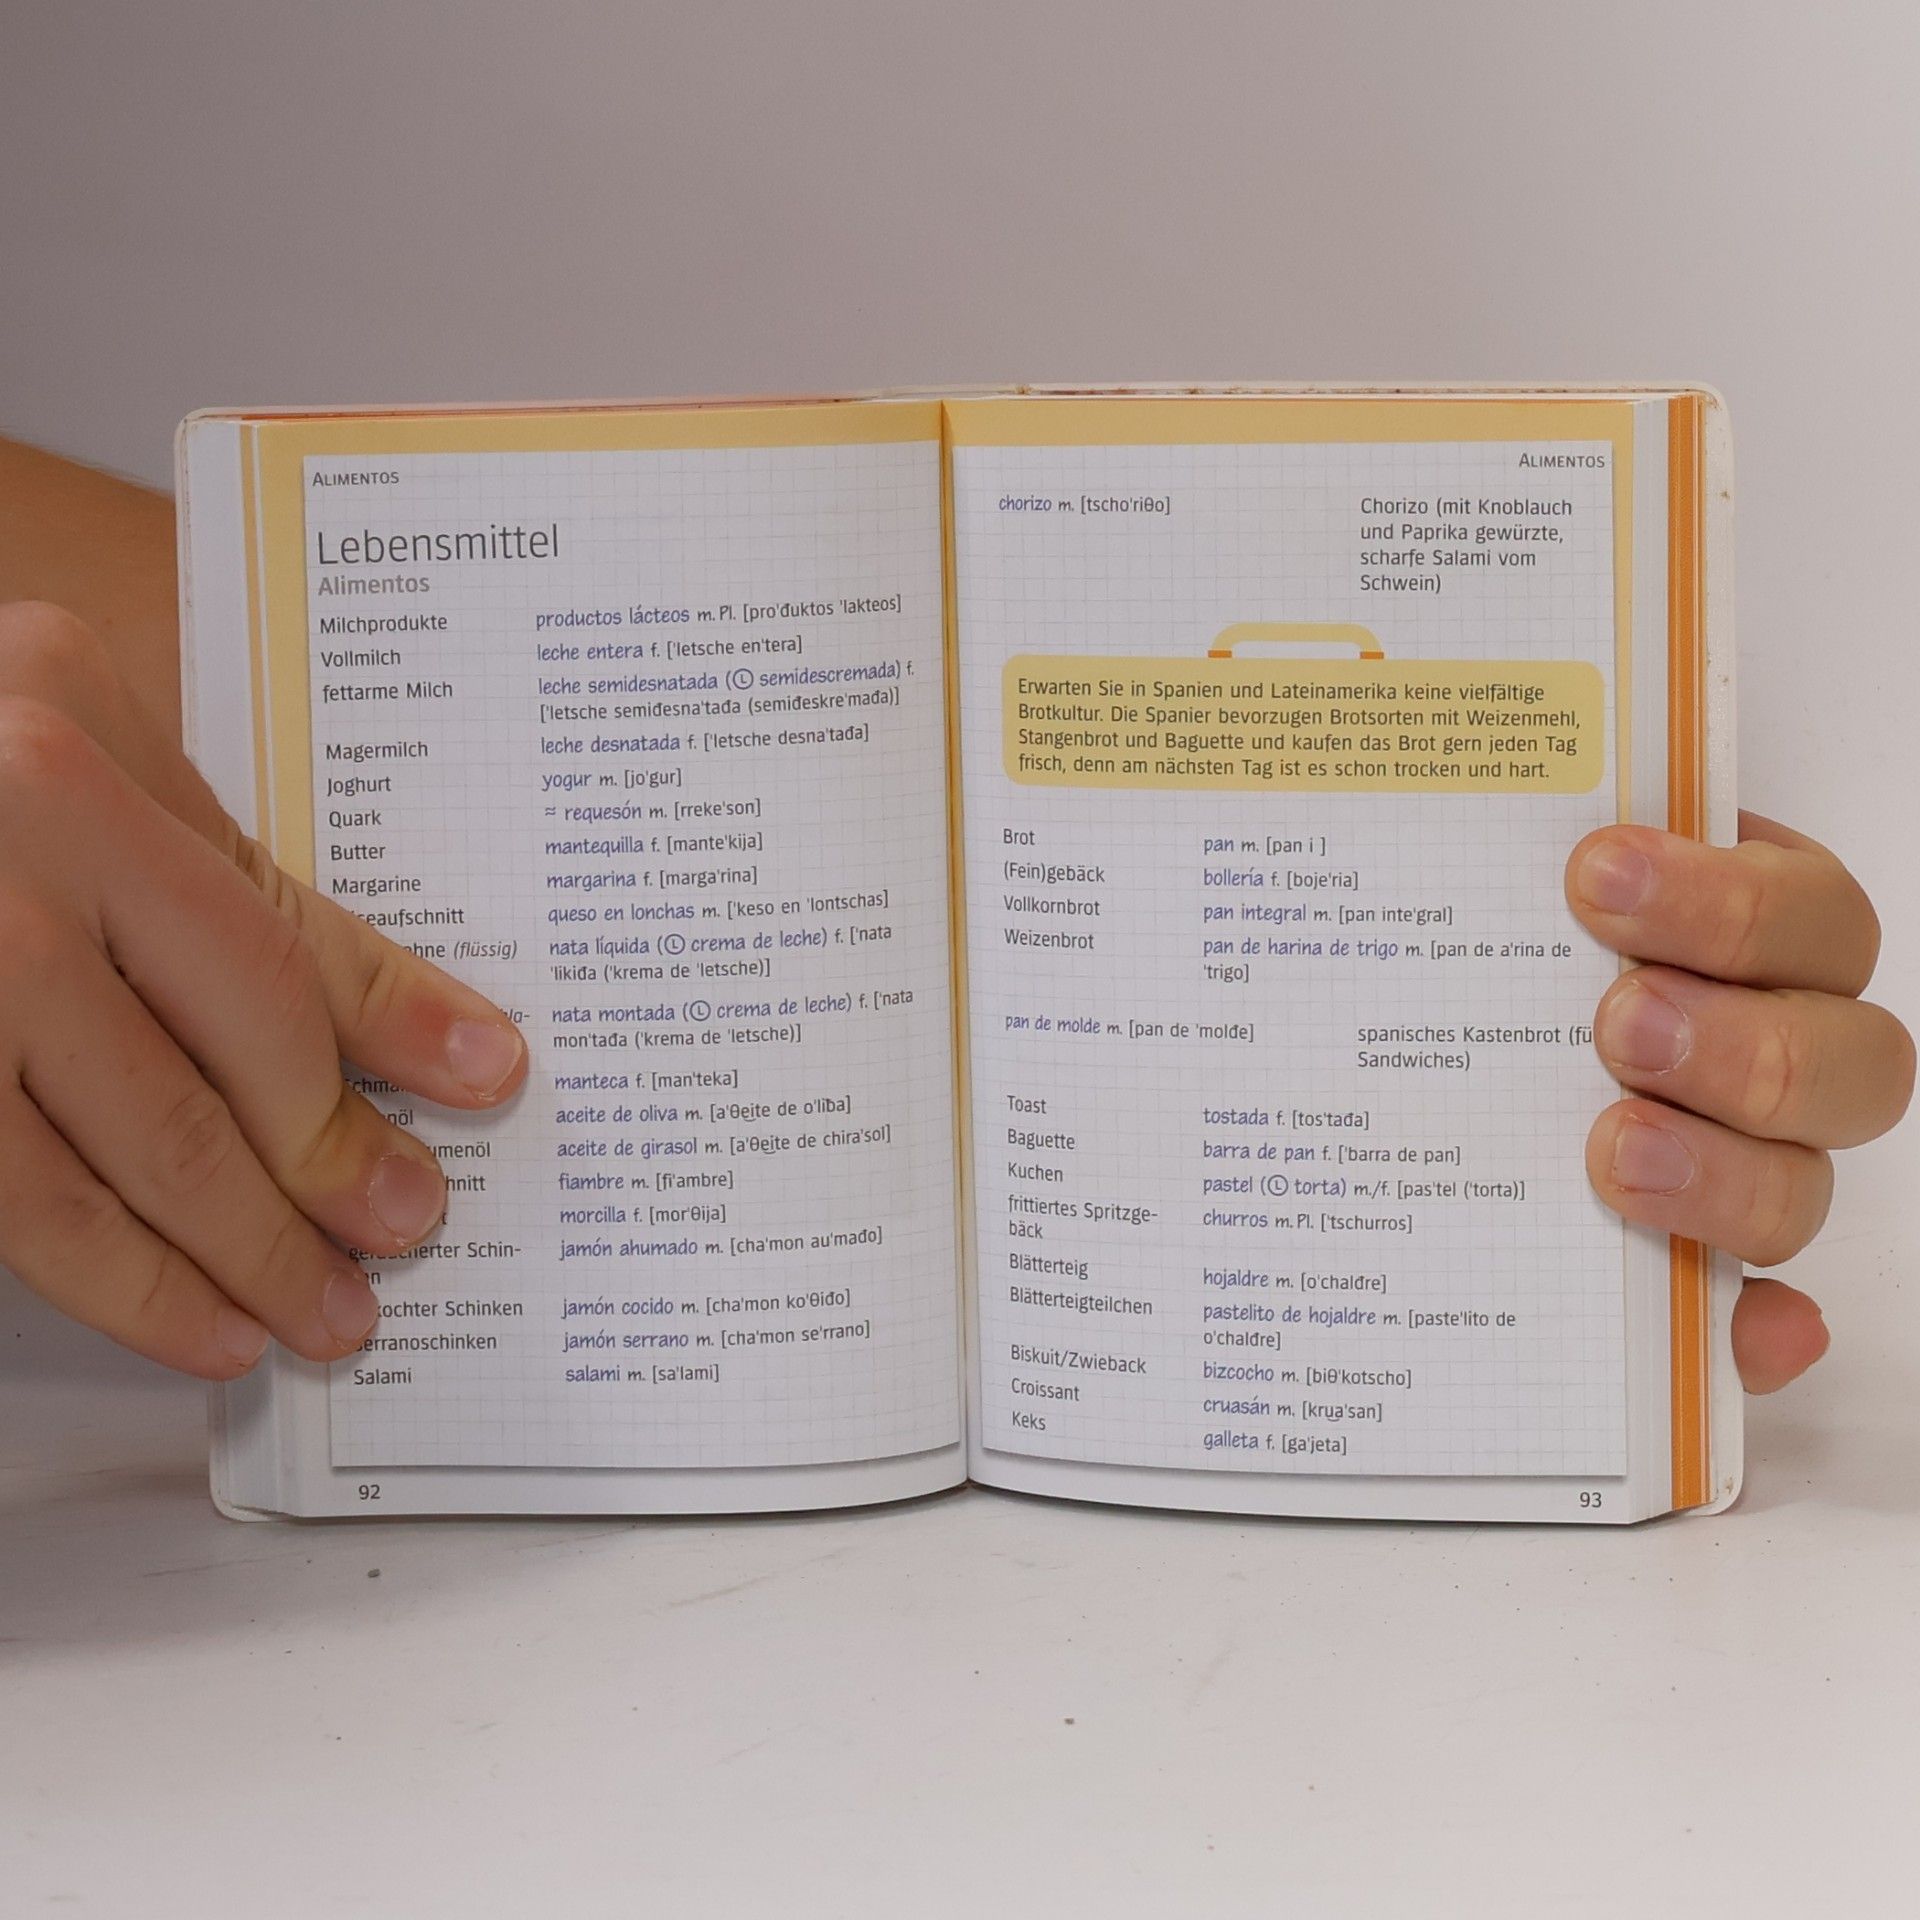 ALIMENTOS
Lebensmittel
Alimentos
Milchprodukte productos lácteos m. Pl. [pro'đuktos 'lakteos]
Vollmilch leche entera f. ['letsche en'tera]
fettarme Milch leche semidesnatada (Ⓛ semidescremada) f.
['letsche semiđesna'tađa (semiđeskre'mađa)]
Magermilch leche desnatada f. ['letsche desna'tađa]
Joghurt yogur m. [jo'gur]
Quark ≈ requesón m. [rreke'son]
Butter mantequilla f. [mante'kija]
Margarine margarina f. [marga'rina]
queso en lonchas m. ['keso en 'lontschas]
(flüssig) nata líquida (Ⓛ crema de leche) f. ['nata
'likiđa ('krema de 'letsche)]
nata montada (Ⓛ crema de leche) f. ['nata
mon'tađa ('krema de 'letsche)]
manteca f. [man'teka]
aceite de oliva m. [a'θe̯ite de o'liƀa]
aceite de girasol m. [a'θe̯ite de chira'sol]
fiambre m. [fi'ambre]
morcilla f. [mor'θija]
Schin- jamón ahumado m. [cha'mon au'mađo]
Schinken jamón cocido m. [cha'mon ko'θiđo]
jamón serrano m. [cha'mon se'rrano]
Salami salami m. [sa'lami]
92
ALIMENTOS
chorizo m. [tscho'riθo] Chorizo (mit Knoblauch
und Paprika gewürzte,
scharfe Salami vom
Schwein)
Erwarten Sie in Spanien und Lateinamerika keine vielfältige
Brotkultur. Die Spanier bevorzugen Brotsorten mit Weizenmehl,
Stangenbrot und Baguette und kaufen das Brot gern jeden Tag
frisch, denn am nächsten Tag ist es schon trocken und hart.
Brot pan m. [pan i ]
(Fein)gebäck bollería f. [boje'ria]
Vollkornbrot pan integral m. [pan inte'gral]
Weizenbrot pan de harina de trigo m. [pan de a'rina de
'trigo]
pan de molde m. [pan de 'molđe] spanisches Kastenbrot
Sandwiches)
Toast tostada f. [tos'tađa]
Baguette barra de pan f. ['barra de pan]
Kuchen pastel (Ⓛ torta) m./f. [pas'tel ('torta)]
frittiertes Spritzge- churros m. Pl. ['tschurros]
bäck
Blätterteig hojaldre m. [o'chalđre]
Blätterteigteilchen pastelito de hojaldre m. [paste'lito de
o'chalđre]
Biskuit/Zwieback bizcocho m. [biθ'kotscho]
Croissant cruasán m. [kru̯a'san]
Keks galleta f. [ga'jeta]
93